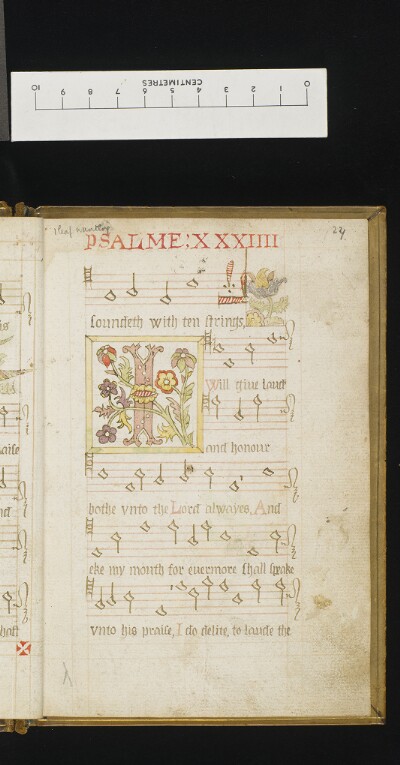 10 9 8 7 6 5 4 3 2 1 0
CENTIMETRES
1 leaf wanting
PSALME; XXXIIII
soundeth with ten strings,
I
Will giue laud
and honour
bothe vnto the Lord alwayes, And
eke my mouth for euermore shall speake
vnto his praise, I do delite, to laude the